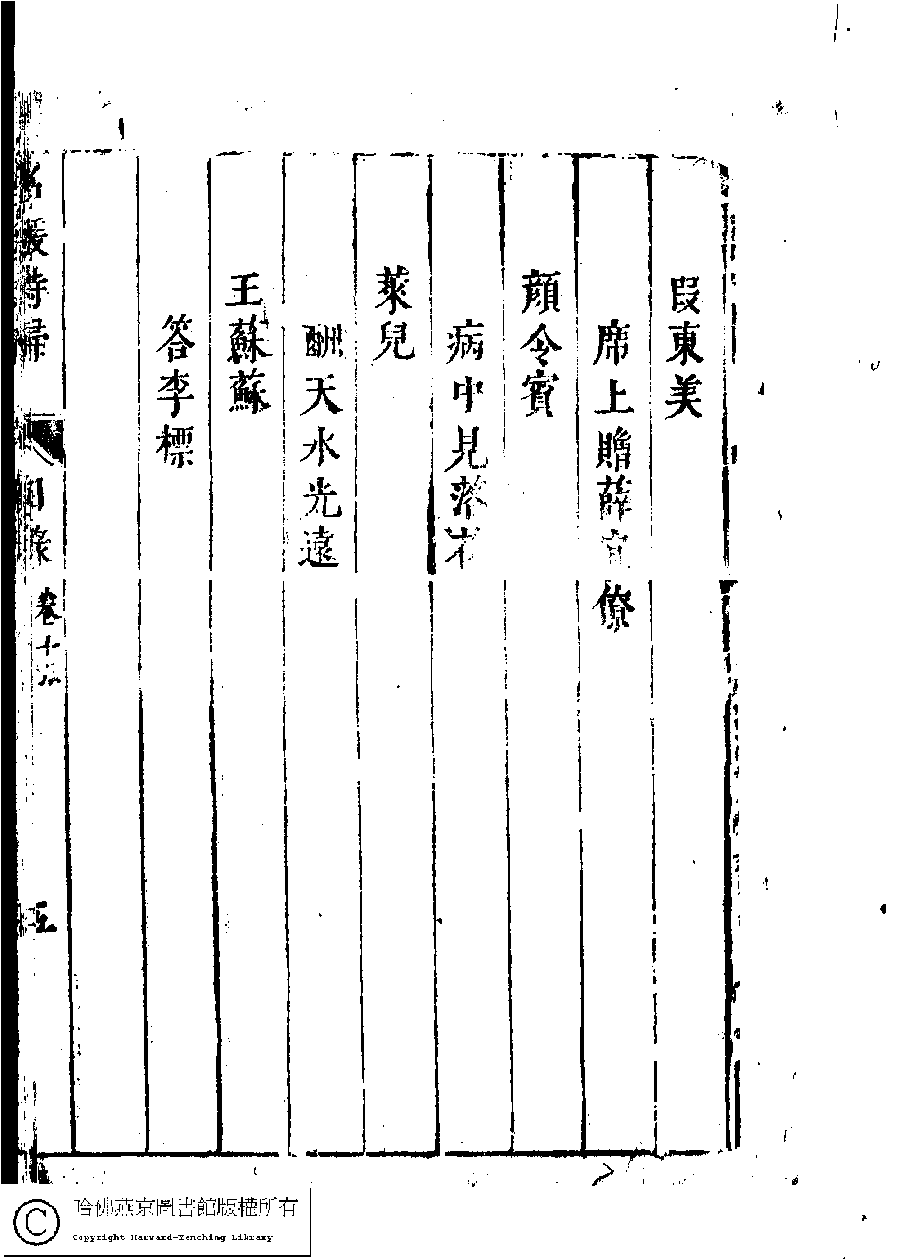 段東美
席上贈薛宜僚
顏令賓
病中見落花
萊兒
酬天水光遠
王蘇蘇
答李標
名媛詩歸
目錄
卷十六
五
哈佛燕京圖書館版權所有
Copyright Harvard-Yenching Library